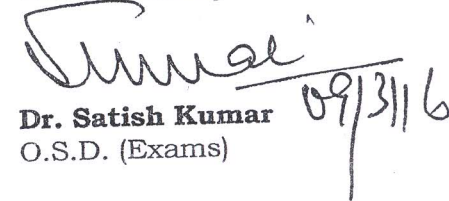 Kumar
09/3/16
Dr. Satish Kumar
O.S.D. (Exams)